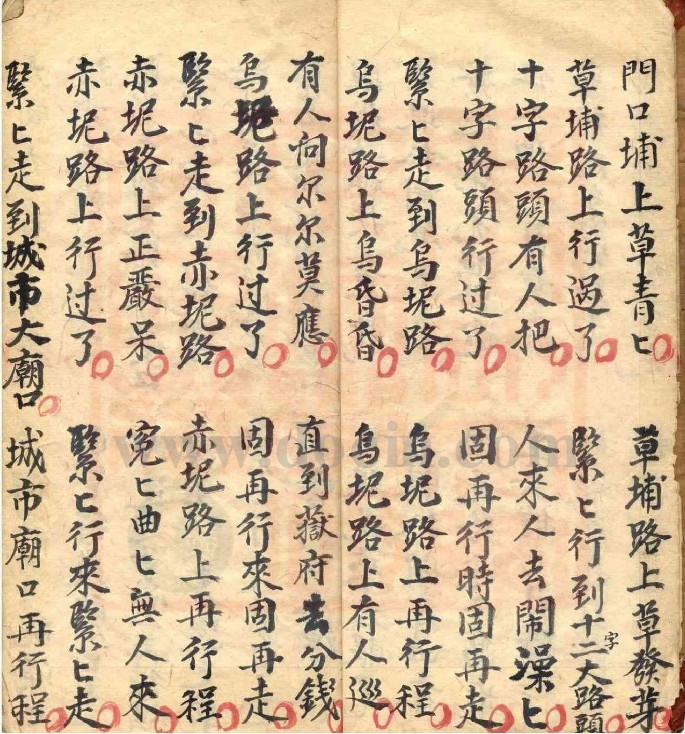 門口埔上草青匕 草埔路上草發芽
草埔路上行過了 緊匕行到十二字大路頭
十字路頭有人把 人來人去鬧澡匕
十字路頭行过了 固再行時固再走
緊匕走到烏坭路 烏坭路上再行程
烏坭路上烏昏昏 烏坭路上有人巡
有人问尔尔莫應 直到嶽府去分錢
烏坭路上行过了 固再行來固再走
緊匕走到赤坭路 赤坭路上再行程
赤坭路上正嚴呆 宛匕曲匕無人來
赤坭路上行过了 緊匕行來緊匕走
緊匕走到城市大廟口 城市廟口再行程